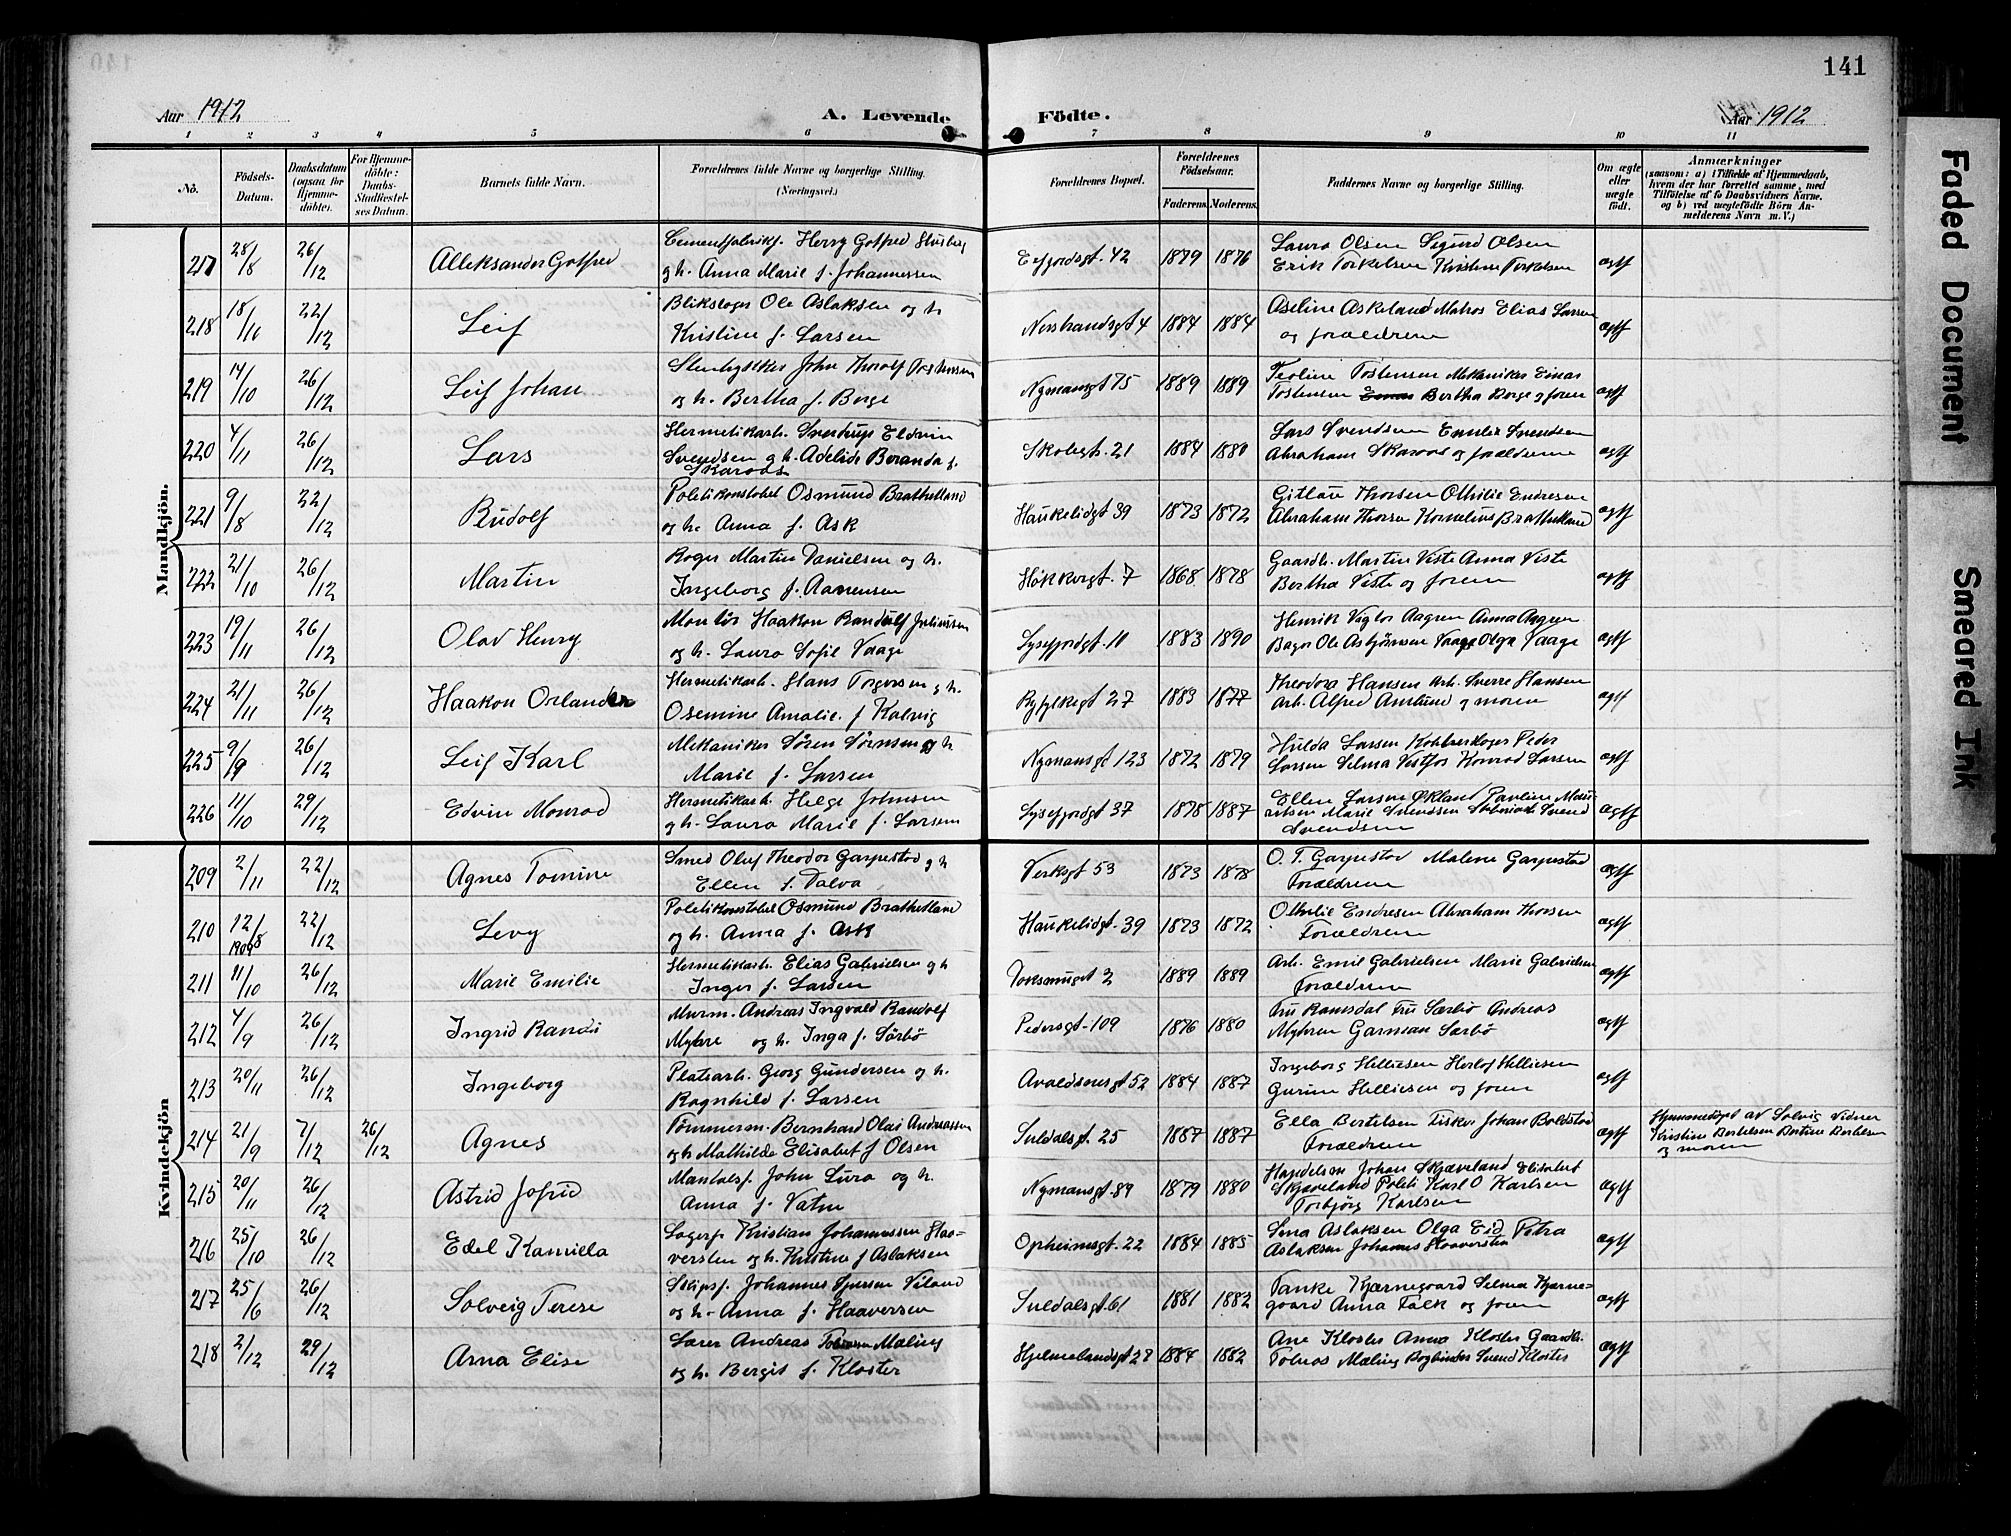 141
Aar 1912
A. Levende Födte.
Aar 1912
1 2 3 4 5 6 7 8 9 10 11
No.
Födsels-Datum.
Daabsdatum (ogsaa for Hjemmedöbte).
For Hjemmedöbte: Daabs-Stadfæstelses Datum.
Barnets fulde Navn.
Forældrenes fulde Navne og borgerlige Stilling. (Næringsvei.)
Forældrenes Bopæl.
Forældrenes Födselsaar.
Faderens. Moderens.
Faddernes Navne og borgerlige Stilling.
Om ægte eller uægte födt.
Anmærkninger
(saasom: a) i Tilfælde af Hjemmedaab, hvem der har forrettet samme, med Tilföielse af to Daabsvidners Navne. og b) ved uægtefödte Börn Anmelderens Navn m. V.)
Mandkjön.
217 28/8 26/12 Alleksander Gotfred
Cementfabrikf. Herry Gotfred
og h. Anna Marie f. Johannessen
Eefjordsgt. 42 1879 1876
Laura Olsen Sigurd Olsen
Erik Torkelsen Kristine Torkelsen
ægtf
218 18/10 22/12 Leif
Blikslager Ole Aslaksen og h
Kristine f. Larsen
4 1884 1884
Aseline Askeland Matros Elias Larsen
og forældrene
ægtf
219 14/10 26/12 Leif Johan
John Thorolf Tostensen
og h. Bertha f. Borge
Nymansgt 75 1889 1889
Teoline Tostensen Mekaniker Einar
Tostensen Bertha Borge og foren
ægtf
220 4/11 26/12 Lars
Hermetikarb. Svertrup Eldvin
Svendsen og h. Adelide Beranda f.
Skaroas
Skolegt. 21 1884 1880
Lars Svendsen Emilie Svendsen
Abraham Skaroas og forældrene
ægtf
221 9/8 22/12 Rudolf
Politikonstabel Osmund Brathetland
og h. Anna f. Ask
Haukelidgt 39 1873 1872
Gitlau Thorsen Othilie Endresen
Abraham Thorsen Kornelius Brathetland
ægtf
222 21/10 26/12 Martin
Roger Martin Danielsen og h.
Ingeborg f. Aanensen
7 1868 1878
Gaardb. Martin Viste Anna Viste
Bertha Viste og foren
ægtf
223 19/11 26/12 Olav Henry
Montör Haakon Randulf Juliussen
og h. Laura Sofie Vaage
Lysefjordgt. 11 1883 1890
Henrik Vigtor Aagren Anna Aagren
Bager Ole Asbjörnsen Vaage Olga Vaage
ægtf
224 21/11 26/12 Haakon Orlander
Hermetikarb. Hans Torgersen og h.
Osemine Amalie. f Kalvig
Ryfylkegt 27 1883 1877
Theodora Hansen Arb. Sverre Hansen
Arb. Alfred Amlund og moren
ægtf
225 9/9 26/12 Leif Karl
Mekaniker Sören Sörnsen og h
Marie f. Larsen
Nymansgt 123 1872 1879
Hulda Larsen Kobberslager Peder
Larsen Selma Vestfos Konrad Larsen
ægtf
226 11/10 29/12 Edvin Monrad
Hermetikarb. Helge Johnsen
og h. Laura Marie f. Larsen
Lysefjordgt 37 1878 1887
Ellen Larsen Økland Pauline
Marie Svendsen Svend
Svendsen
ægtf
Kvindekjön
209 2/11 22/12 Agnes Tomine
Smed Oluf Theodor Garpestad og h
Ellen f. Dalva
Verksgt 53 1873 1878
O. T. Garpestad Malene Garpestad
Forældrene
ægtf
210 12/8 1909 22/12 Levy
Politikonstabel Osmund Brathetland
og h. Anna f. Ask
Haukelidgt. 39 1873 1872
Othilie Endresen Abraham Thorsen
Forældrene
ægtf
211 11/10 26/12 Marie Emilie
Hermetikarb. Elias Gabrielsen og h
Inger f. Larsen
2 1889 1889
Arb. Emil Gabrielsen Marie Gabrielsen
Forældrene
ægtf
212 4/9 26/12 Ingrid Randi
Murm. Andreas Ingvald Randolf
Myhre og h. Inga f. Sörbö
Pedersgt. 109 1876 1880
Fru Ramsdal Fru Særbö Andreas
Myhren Garman Særbö
ægtf
213 20/11 26/12 Ingeborg
Georg Gundersen og h.
Ragnhild f. Larsen
Avaldsnesgt 52 1884 1887
Ingeborg Helliesen Herlof Helliesen
Gurine Helliesen og foren
ægtf
214 21/9 7/12 26/12 Agnes
Tömmerm. Bernhard Olai Andreassen
og h Mathilde Elisabet f Olsen
Suldalsgt. 25 1887 1887
Ella Bertelsen Fisker Johan Boldstad
Forældrene
ægtf
Hjemmedöpt av Solvig Vidner
Kristine Bertelsen Bertine Bertelsen
og moren
215 20/11 26/12 Astrid Jofrid
Mandalsf. John Lura og h.
Anna f. Vatne
Nymansgt. 89 1879 1880
Handelsm Johan Skjæveland Elisabet
Skjæveland Politi Karl O Karlsen
Torbjörg Karlsen
ægtf
216 25/10 26/12 Edel Kamilla
Lagerf. Kristian Johannessen Haaversten og h. Kristine f Aslaksen
Opheimsgt. 22 1884 1885
Sena Aslaksen Olga Eid Petra
Aslaksen Johannes Haaversten
ægtf
217 25/6 26/12 Solveig Terese
Skipsf. Johannes Viland
og h. Anna f. Haaversen
Suldalsgt 61 1881 1882
Tanke Kjærnegaard Selma Kjærnegaard Anna Falk og foren
ægtf
218 2/12 29/12 Arna Elise
Lærer Andreas Maling
og h. Bergit f. Kloster
Hjelmelandsgt 28 1884 1882
Ane Kloster Anna Kloster Gaardb.
Tobias Maling Bogbinder Svend Kloster
ægtf
Faded Document
Smeared Ink